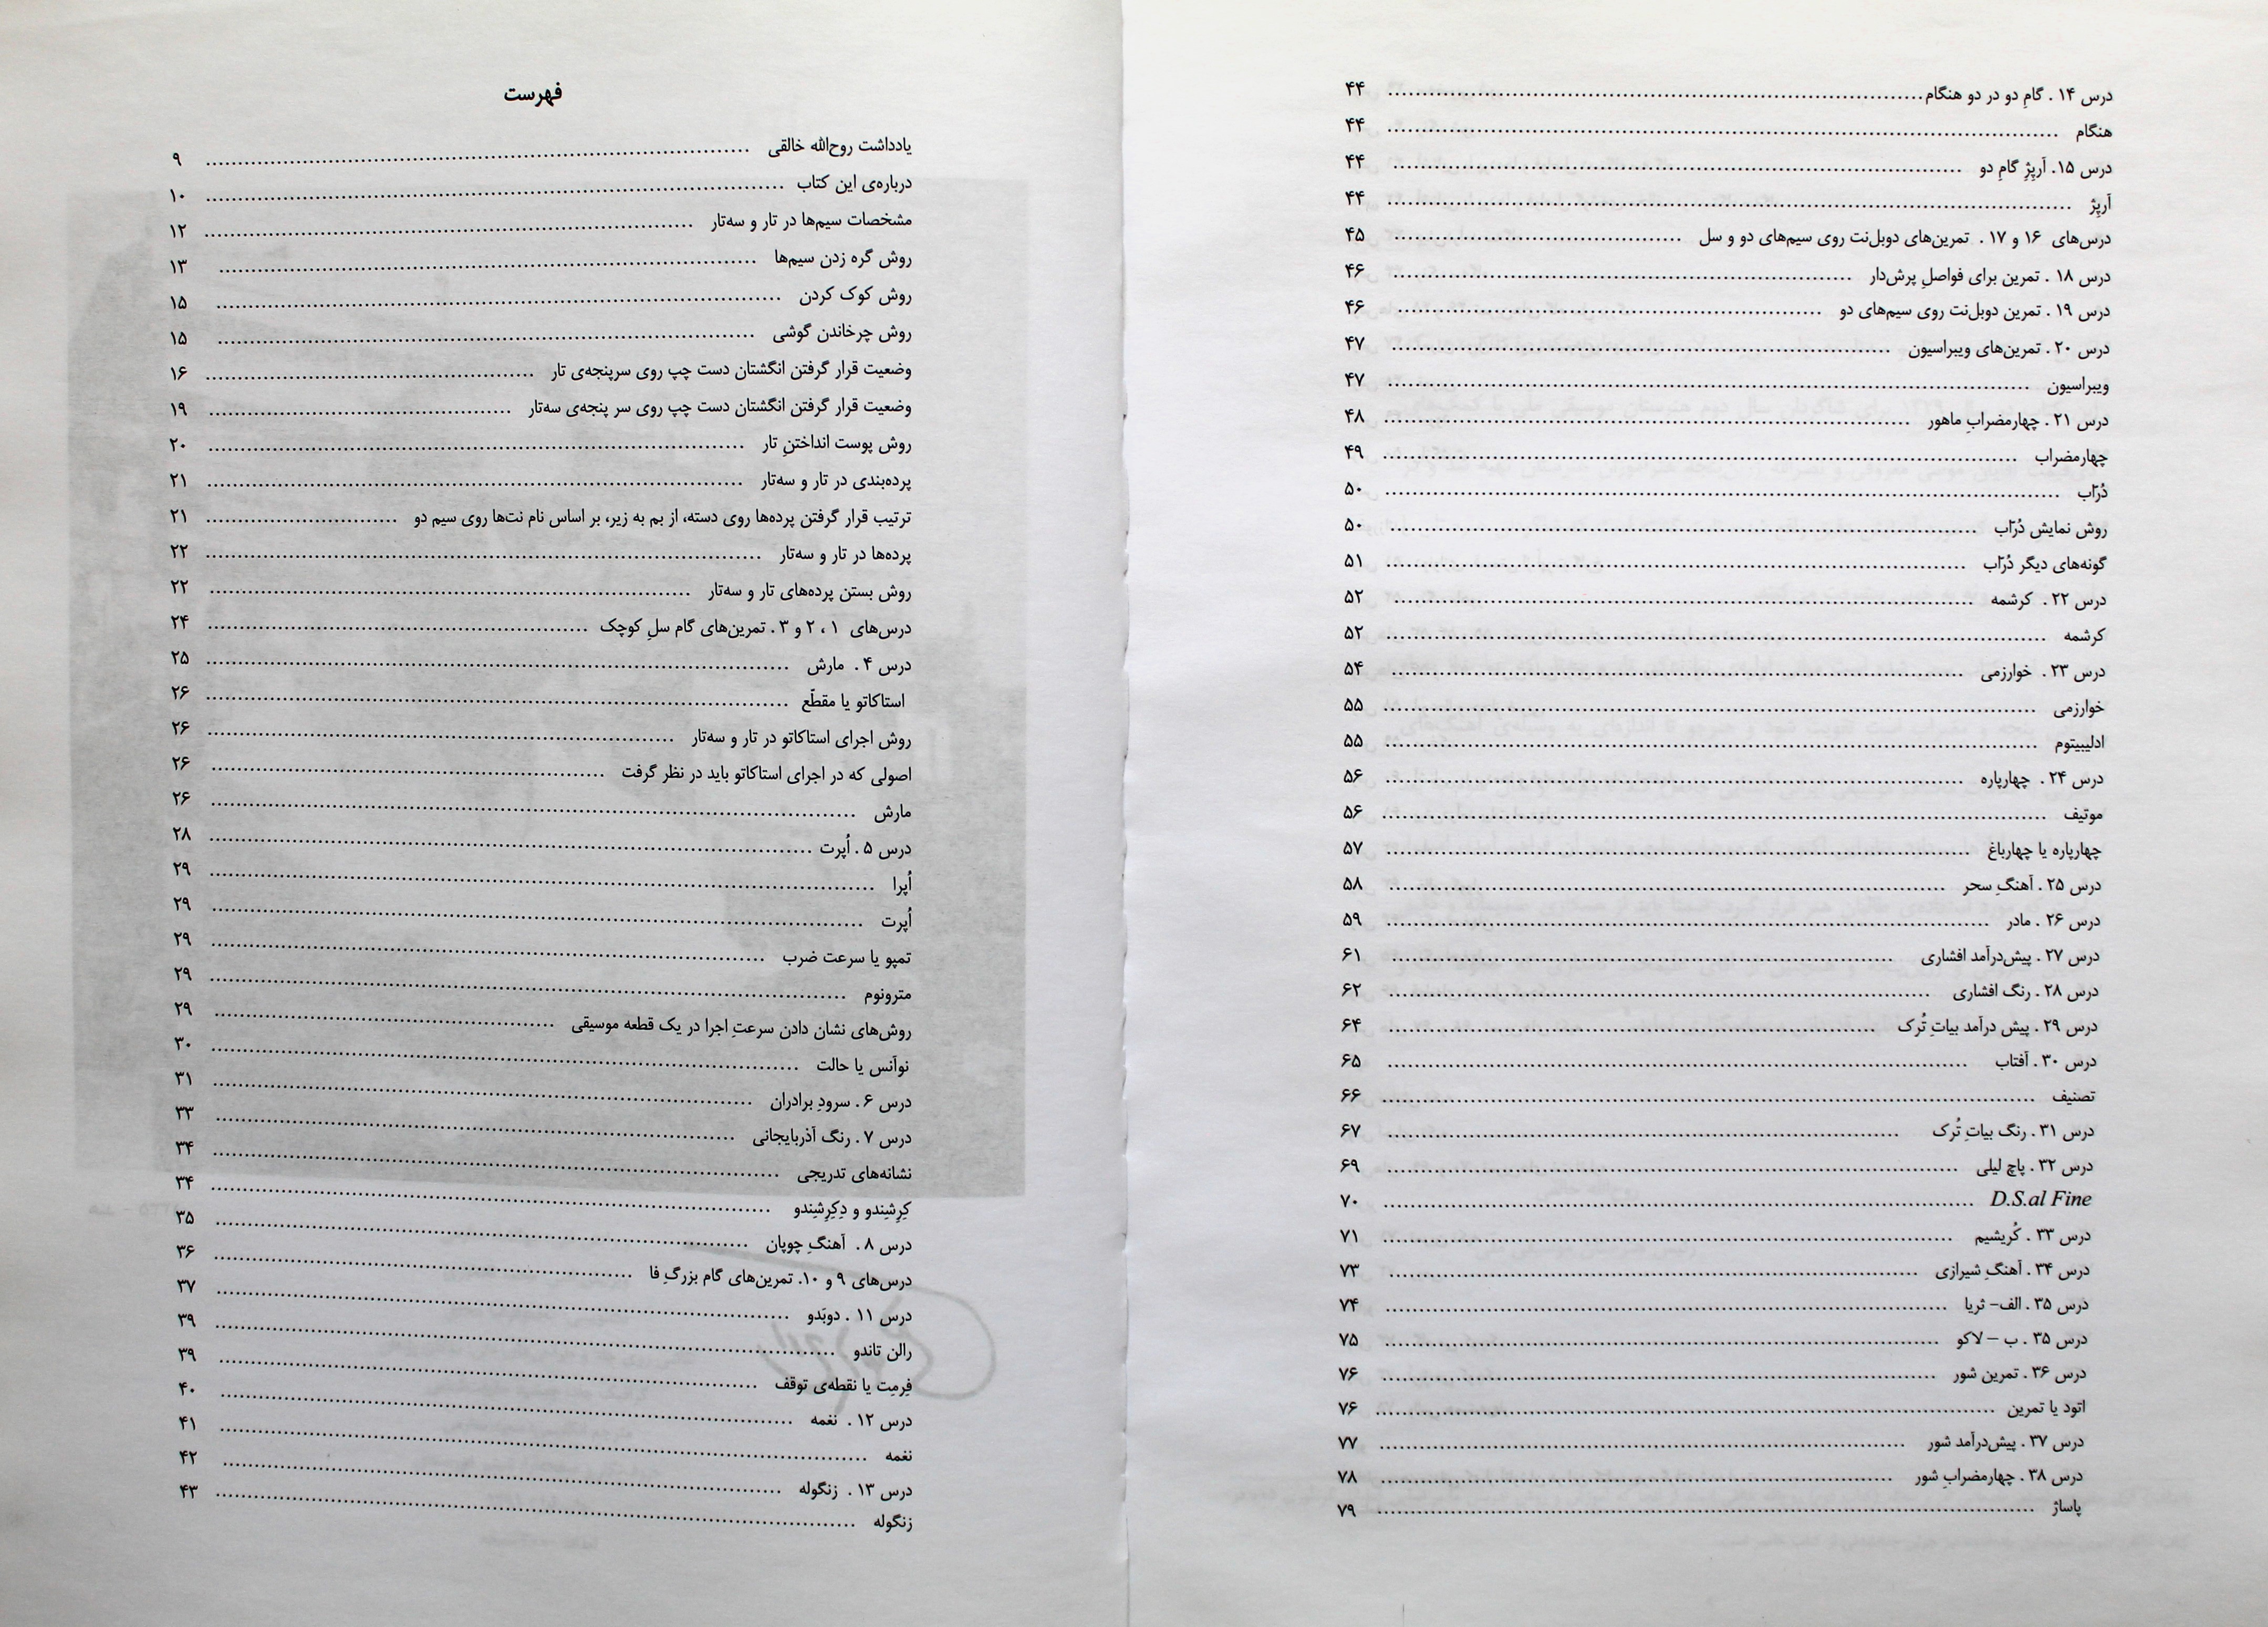 فهرست
یادداشت روح‌الله خالقی ........ ۹
درباره‌ی این کتاب ........ ۱۰
مشخصات سیم‌ها در تار و سه‌تار ........ ۱۲
روش گره زدن سیم‌ها ........ ۱۳
روش کوک کردن ........ ۱۵
روش چرخاندن گوشی ........ ۱۵
وضعیت قرار گرفتن انگشتان دست چپ روی سرپنجه‌ی تار ........ ۱۶
وضعیت قرار گرفتن انگشتان دست چپ روی سر پنجه‌ی سه‌تار ........ ۱۹
روش پوست انداختنِ تار ........ ۲۰
پرده‌بندی در تار و سه‌تار ........ ۲۱
ترتیب قرار گرفتن پرده‌ها روی دسته، از بم به زیر، بر اساس نام نت‌ها روی سیم دو ........ ۲۱
پرده‌ها در تار و سه‌تار ........ ۲۲
روش بستن پرده‌های تار و سه‌تار ........ ۲۲
درس‌های ۱ ، ۲ و ۳ . تمرین‌های گام سلِ کوچک ........ ۲۴
درس ۴ . مارش ........ ۲۵
استاکاتو یا مقطّع ........ ۲۶
روش اجرای استاکاتو در تار و سه‌تار ........ ۲۶
اصولی که در اجرای استاکاتو باید در نظر گرفت ........ ۲۶
مارش ........ ۲۶
درس ۵ . اُپرت ........ ۲۸
اُپرا ........ ۲۹
اُپرت ........ ۲۹
تمپو یا سرعت ضرب ........ ۲۹
مترونوم ........ ۲۹
روش‌های نشان دادن سرعتِ اجرا در یک قطعه موسیقی ........ ۲۹
نوآنس یا حالت ........ ۳۰
درس ۶ . سرودِ برادران ........ ۳۱
درس ۷ . رنگ آذربایجانی ........ ۳۳
نشانه‌های تدریجی ........ ۳۴
کِرِشِندو و دِکِرِشِندو ........ ۳۴
درس ۸ . آهنگِ چوپان ........ ۳۵
درس‌های ۹ و ۱۰. تمرین‌های گام بزرگِ فا ........ ۳۶
درس ۱۱ . دوبَدو ........ ۳۷
رالن تاندو ........ ۳۹
فِرمِت یا نقطه‌ی توقف ........ ۳۹
درس ۱۲ . نغمه ........ ۴۰
نغمه ........ ۴۱
درس ۱۳ . زنگوله ........ ۴۲
زنگوله ........ ۴۳
درس ۱۴ . گامِ دو در دو هنگام ........ ۴۴
هنگام ........ ۴۴
درس ۱۵. آرپژِ گامِ دو ........ ۴۴
آرپژ ........ ۴۴
درس‌های ۱۶ و ۱۷ . تمرین‌های دوبل‌نت روی سیم‌های دو و سل ........ ۴۵
درس ۱۸ . تمرین برای فواصلِ پرش‌دار ........ ۴۶
درس ۱۹ . تمرین دوبل‌نت روی سیم‌های دو ........ ۴۶
درس ۲۰ . تمرین‌های ویبراسیون ........ ۴۷
ویبراسیون ........ ۴۷
درس ۲۱ . چهارمضرابِ ماهور ........ ۴۸
چهارمضراب ........ ۴۹
دُرّاب ........ ۵۰
روش نمایش دُرّاب ........ ۵۰
گونه‌های دیگر دُرّاب ........ ۵۱
درس ۲۲ . کرشمه ........ ۵۲
کرشمه ........ ۵۲
درس ۲۳ . خوارزمی ........ ۵۴
خوارزمی ........ ۵۵
ادلیبیتوم ........ ۵۵
درس ۲۴ . چهارپاره ........ ۵۶
موتیف ........ ۵۶
چهارپاره یا چهارباغ ........ ۵۷
درس ۲۵ . آهنگِ سحر ........ ۵۸
درس ۲۶ . مادر ........ ۵۹
درس ۲۷ . پیش‌درآمد افشاری ........ ۶۱
درس ۲۸ . رنگ افشاری ........ ۶۲
درس ۲۹ . پیش درآمد بیاتِ تُرک ........ ۶۴
درس ۳۰ . آفتاب ........ ۶۵
تصنیف ........ ۶۶
درس ۳۱ . رنگ بیاتِ تُرک ........ ۶۷
درس ۳۲ . پاچ لیلی ........ ۶۹
D.S.al Fine ........ ۷۰
درس ۳۳ . کُریشیم ........ ۷۱
درس ۳۴ . آهنگِ شیرازی ........ ۷۳
درس ۳۵ . الف- ثریا ........ ۷۴
درس ۳۵ . ب – لاکو ........ ۷۵
درس ۳۶ . تمرین شور ........ ۷۶
اتود یا تمرین ........ ۷۶
درس ۳۷ . پیش‌درآمد شور ........ ۷۷
درس ۳۸ . چهارمضرابِ شور ........ ۷۸
پاساژ ........ ۷۹